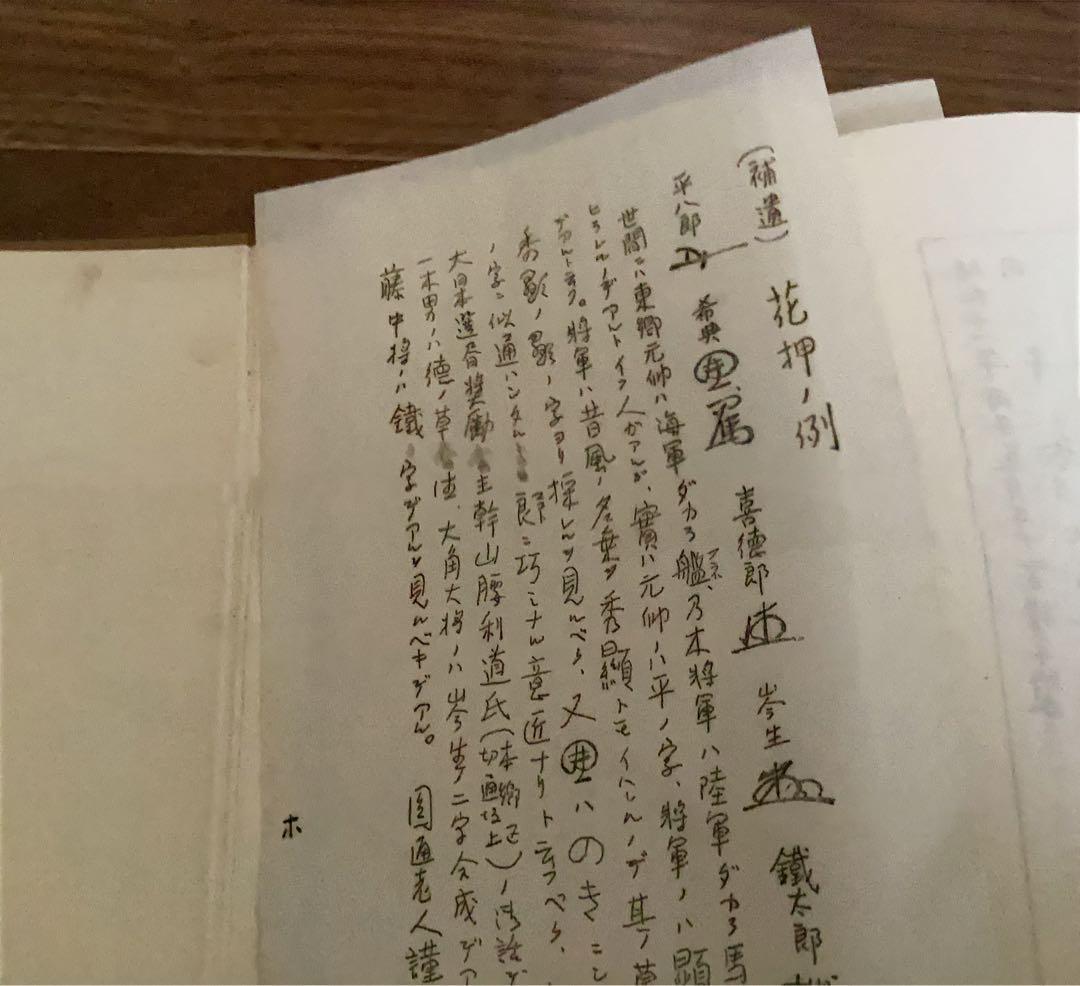 (補遺) 花押ノ例
平八郎 希典 喜徳郎 岑生 鐵太郎
世間ニハ東郷元帥ハ海軍ダカラ艦、乃木将軍ハ陸軍ダカラ馬
フネ
ヒラレルノデアルトイフ人ガアルガ、實ハ元帥ノハ平ノ字、将軍ノハ顯
デアルトラフ。将軍ハ昔風ノ名乗ヲ秀顯トモイハレルノデ其ノ草
秀顯ノ顯ノ字ヨリ採レルヲ見ルベク、又 ハのきこ
ノ字ニ似通ハシタル 郎ニ巧ミナル意匠ナリト云フベク、
大日本選 奬勵 主幹山腰利道氏(本郷区切通坂上)ノ御話デ
一木男ノハ徳ノ草 体、大角大将ノハ岑生ノ二字合成デア
藤中将ノハ鐵ノ字デアルヲ見ルベキデアル。 圓通老人謹
ホ